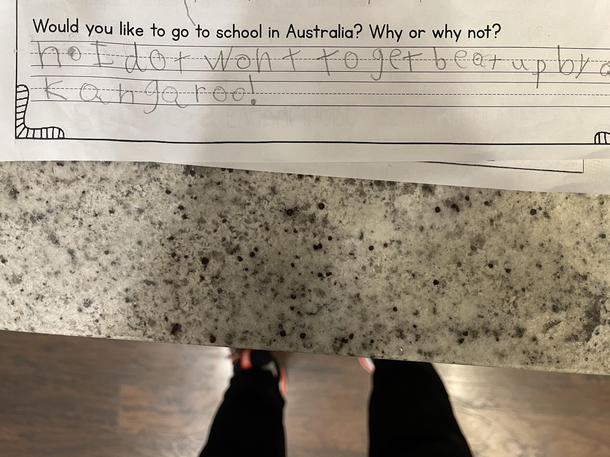 Would you like to go to school in Australia? Why or why not?
no I dot wont to get beat up by a
kangaroo!